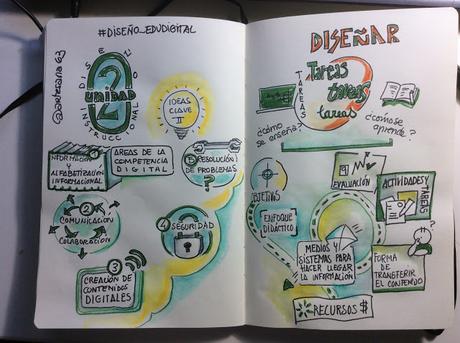 #DISEÑO_EDUDIGITAL
@artesana63
DISEÑO
UNIDAD
2
INSTRUCCIONAL
IDEAS
CLAVE
II
ÁREAS DE LA
COMPETENCIA
DIGITAL
1
INFORMACIÓN
Y
ALFABETIZACIÓN
INFORMACIONAL
2
COMUNICACIÓN
Y
COLABORACIÓN
3
CREACIÓN DE
CONTENIDOS
DIGITALES
4
SEGURIDAD
5
RESOLUCIÓN
DE PROBLEMAS
?
DISEÑAR
TAREAS
Tareas
tareas
tareas
¿CÓMO
SE ENSEÑA?
¿CÓMO SE
APRENDE?
OBJETIVOS
ENFOQUE
DIDÁCTICO
EVALUACIÓN
ACTIVIDADES Y
TAREAS
MEDIOS Y
SISTEMAS PARA
HACER LLEGAR
LA INFORMACIÓN
FORMA
DE
TRANSFERIR
EL CONTENIDO
RECURSOS $